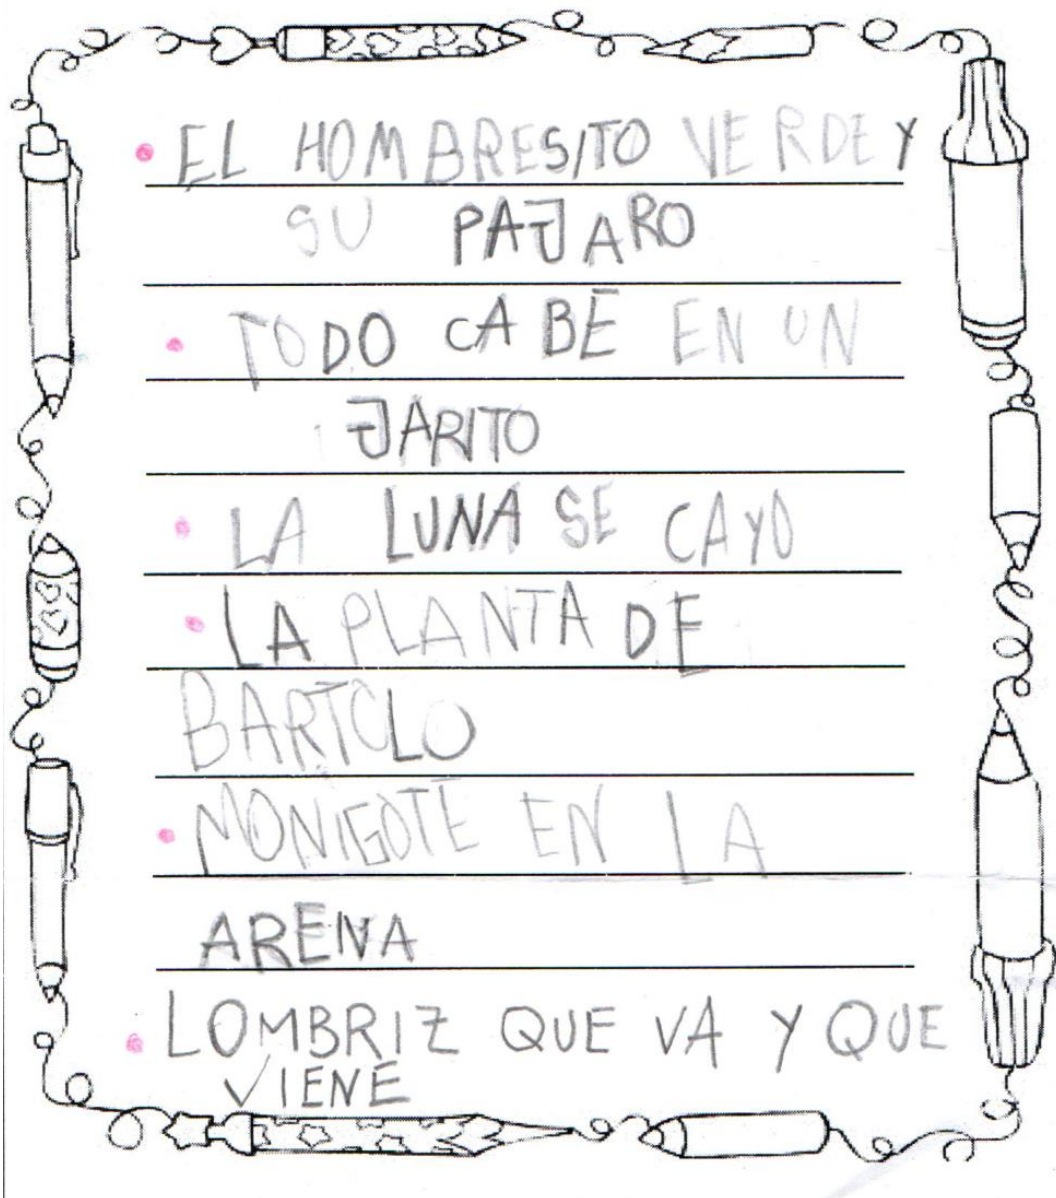 • EL HOMBRESITO VERDE Y
SU PAJARO
• TODO CABE EN UN
JARITO
• LA LUNA SE CAYO
• LA PLANTA DE
BARTOLO
• MONIGOTE EN LA
ARENA
• LOMBRIZ QUE VA Y QUE
VIENE